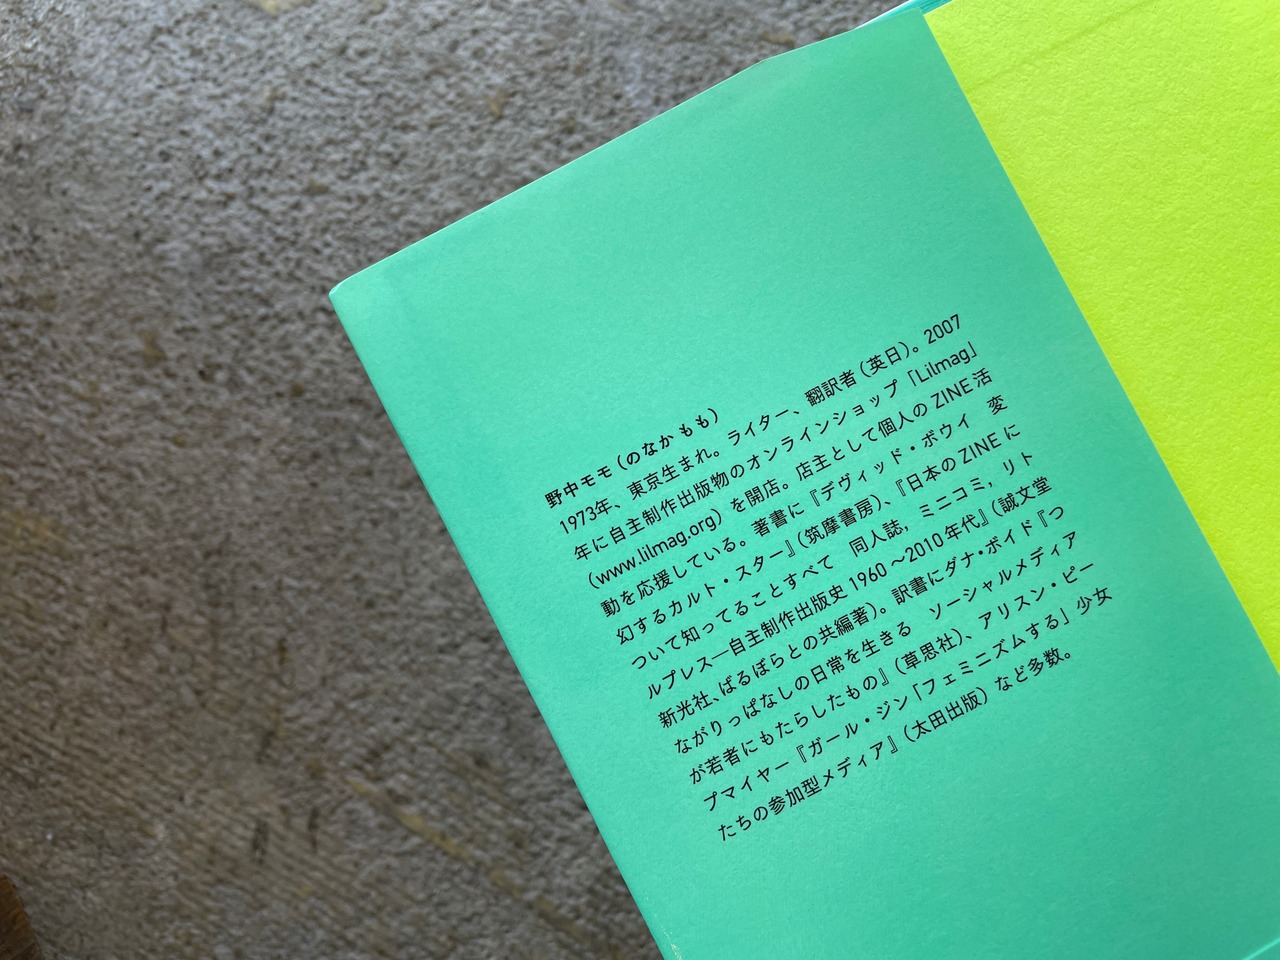 野中モモ(のなか もも)
1973年、東京生まれ。ライター、翻訳者(英日)。2007
年に自主制作出版物のオンラインショップ「Lilmag」
(www.lilmag.org)を開店。店主として個人のZINE活
動を応援している。著書に『デヴィッド・ボウイ　変
幻するカルト・スター』(筑摩書房)、『日本のZINEに
ついて知ってることすべて　同人誌，ミニコミ，リト
ルプレス―自主制作出版史1960〜2010年代』(誠文堂
新光社、ばるぼらとの共編著)。訳書にダナ・ボイド『つ
ながりっぱなしの日常を生きる　ソーシャルメディア
が若者にもたらしたもの』(草思社)、アリスン・ピー
プマイヤー『ガール・ジン「フェミニズムする」少女
たちの参加型メディア』(太田出版)など多数。